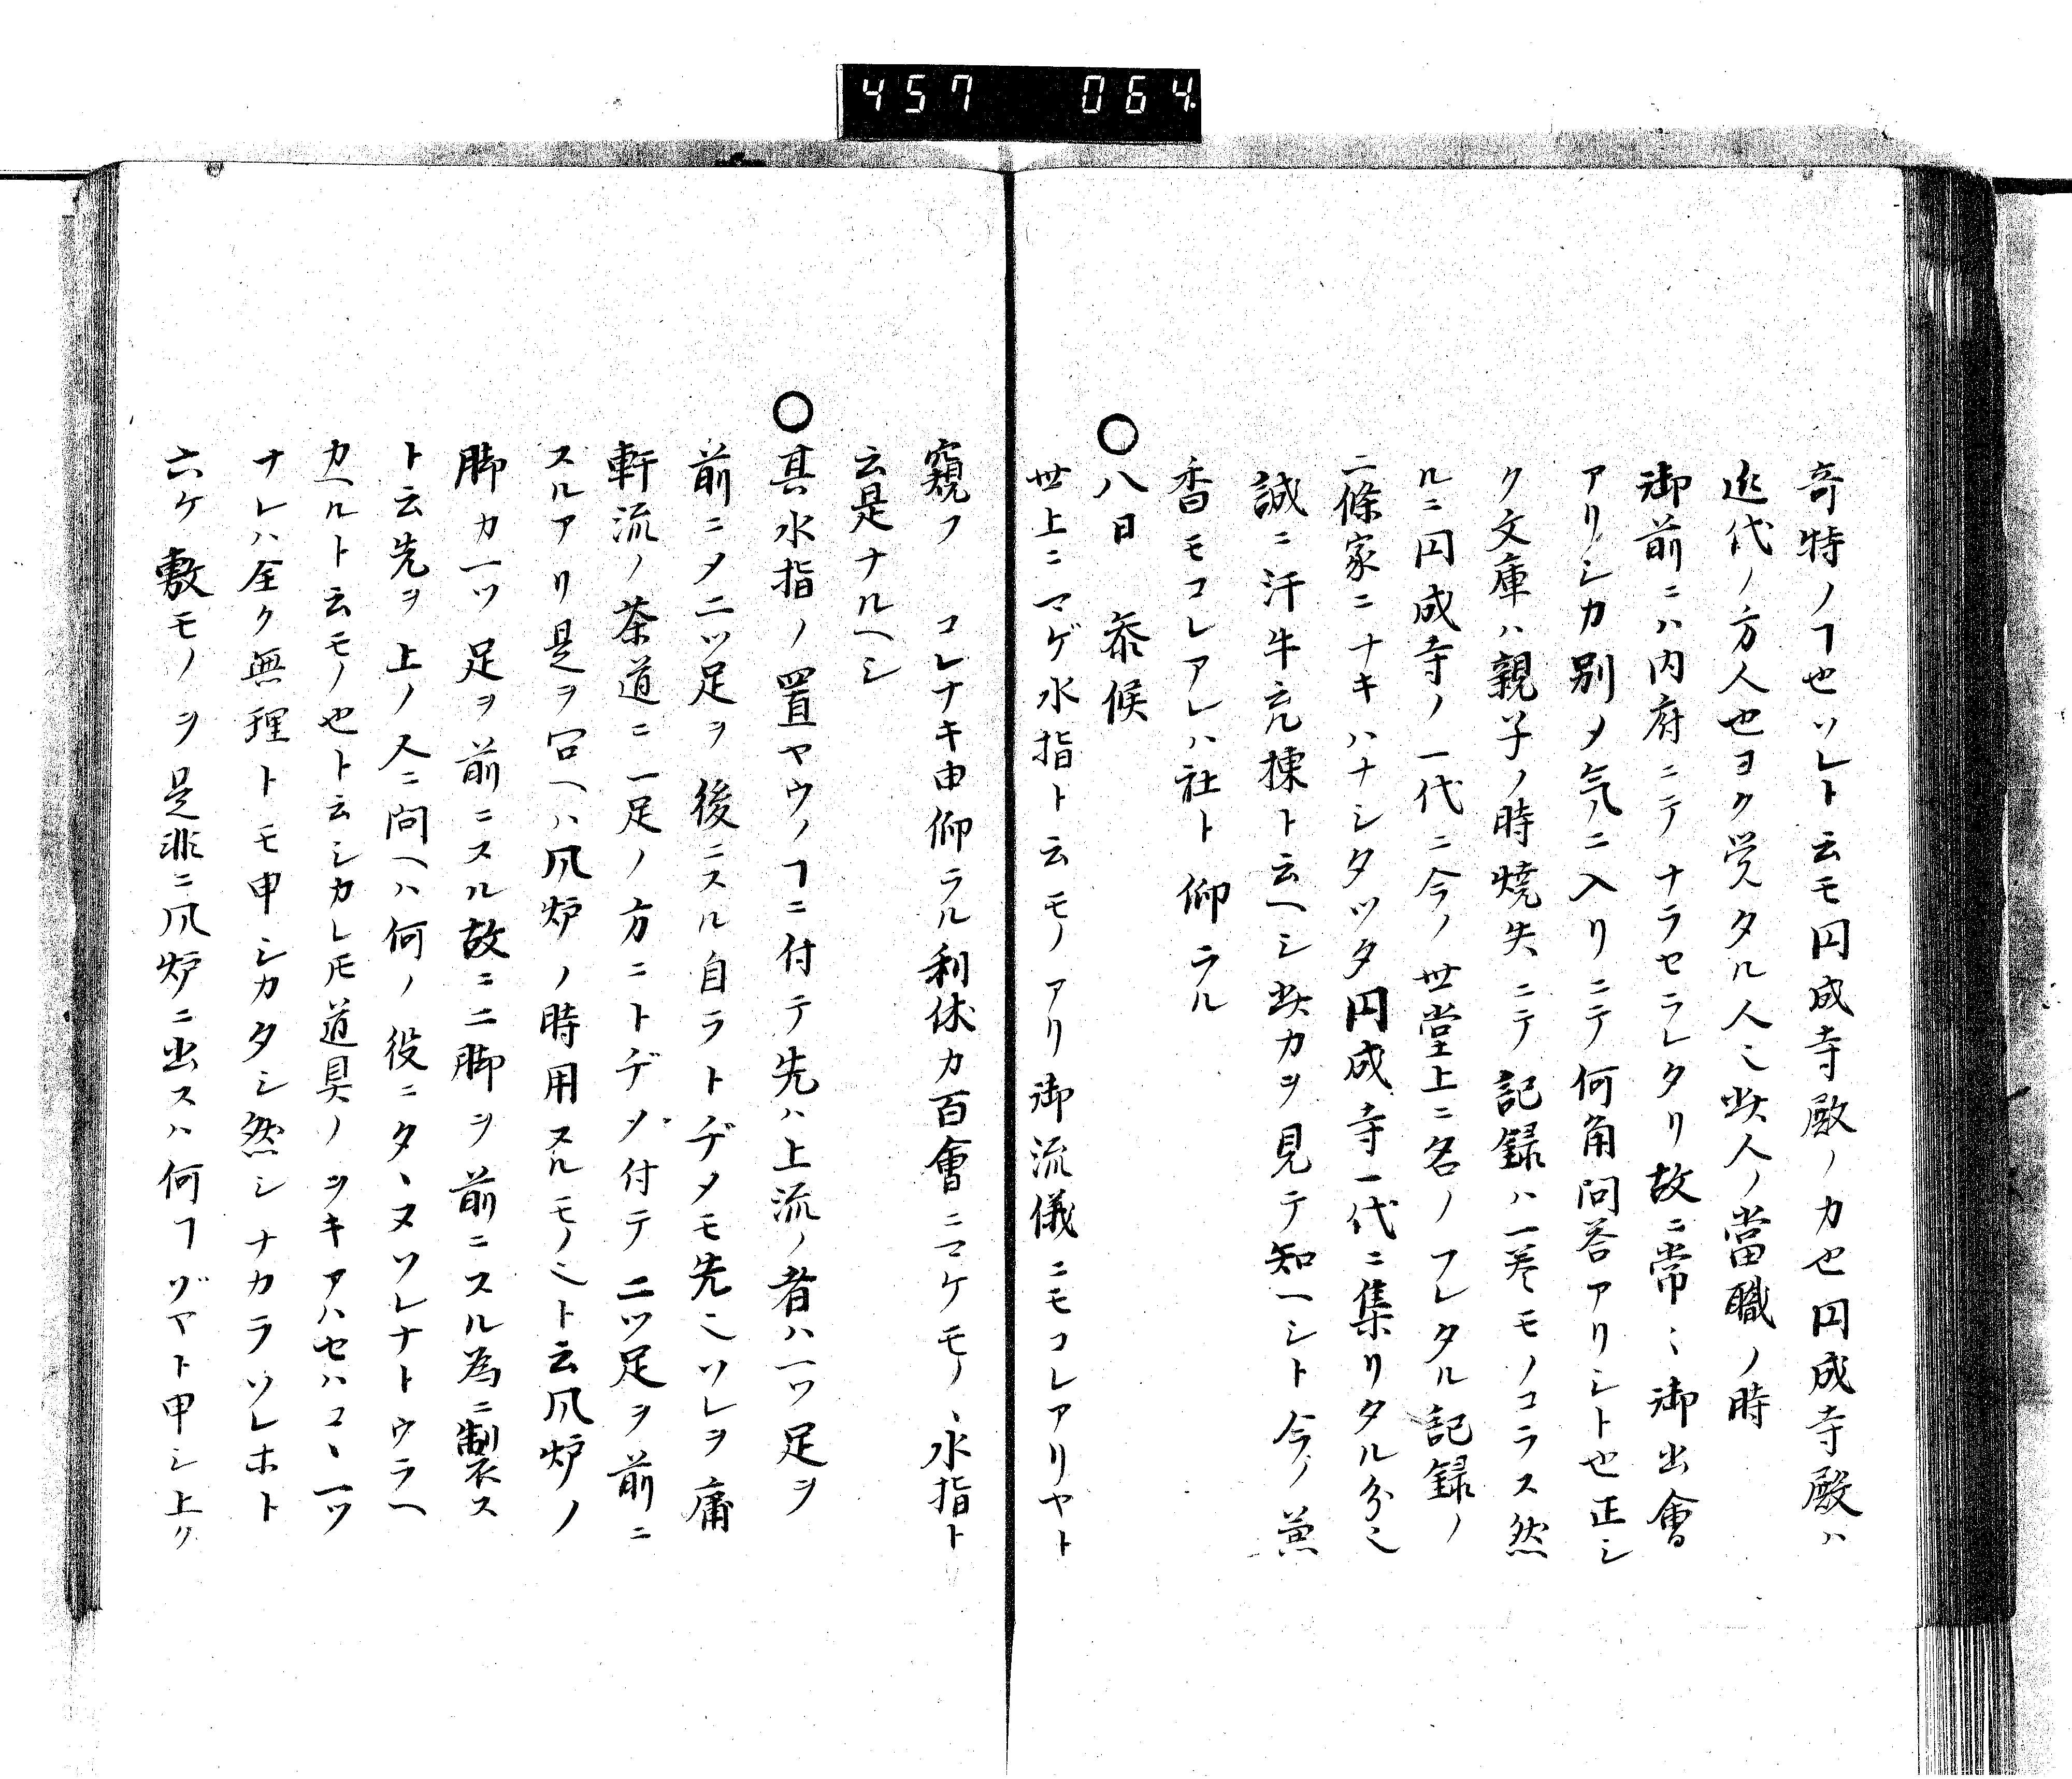 457 064
奇特ノヿ也ソレト云モ円成寺殿ノカ也円成寺殿ハ
近代ノ方人也ヨク覚タル人〻此人ノ當職ノ時
御前ニハ内府ニテナラセラレタリ故ニ常〻御出會
アリシカ別〆気ニ入リニテ何角問答アリシト也正シ
ク文庫ハ親子ノ時焼失ニテ記録ハ一巻モノコラス然
ルニ円成寺ノ一代ニ今ノ世堂上ニ名ノフレタル記録ノ
二條家ニナキハナシタッタ円成寺一代ニ集リタル分〻
誠ニ汗牛充棟ト云ヘシ此カヲ見テ知ヘシト今ノ兼
香モコレアレハ社ト仰ラル
〇八日 参候
世上ニマゲ水指ト云モノアリ御流儀ニモコレアリヤト
窺フ コレナキ由仰ラル利休カ百會ニマケモノヽ水指ト
云是ナルヘシ
〇其水指ノ置ヤウノヿニ付テ先ハ上流ノ者ハ一ツ足ヲ
前ニ〆二ツ足ヲ後ニスル自ラトヂメモ先〻ソレヲ庸
軒流ノ茶道ニ一足ノ方ニトヂメ付テ二ツ足ヲ前ニ
スルアリ是ヲ問ヘハ風炉ノ時用スルモノ〻ト云風炉ノ
脚カ一ツ足ヲ前ニスル故ニ二脚ヲ前ニスル為ニ製ス
ト云先ヲ上ノ人ニ問ヘハ何ノ役ニタヽヌソレナトウラヘ
カヘルト云モノ也ト云シカレ𪜈道具ノツキアハセハコヽ一ツ
ナレハ全ク無理トモ申シカタシ然シナカラソレホト
六ケ敷モノヲ是非ニ風炉ニ出スハ何ヿゾヤト申シ上ク